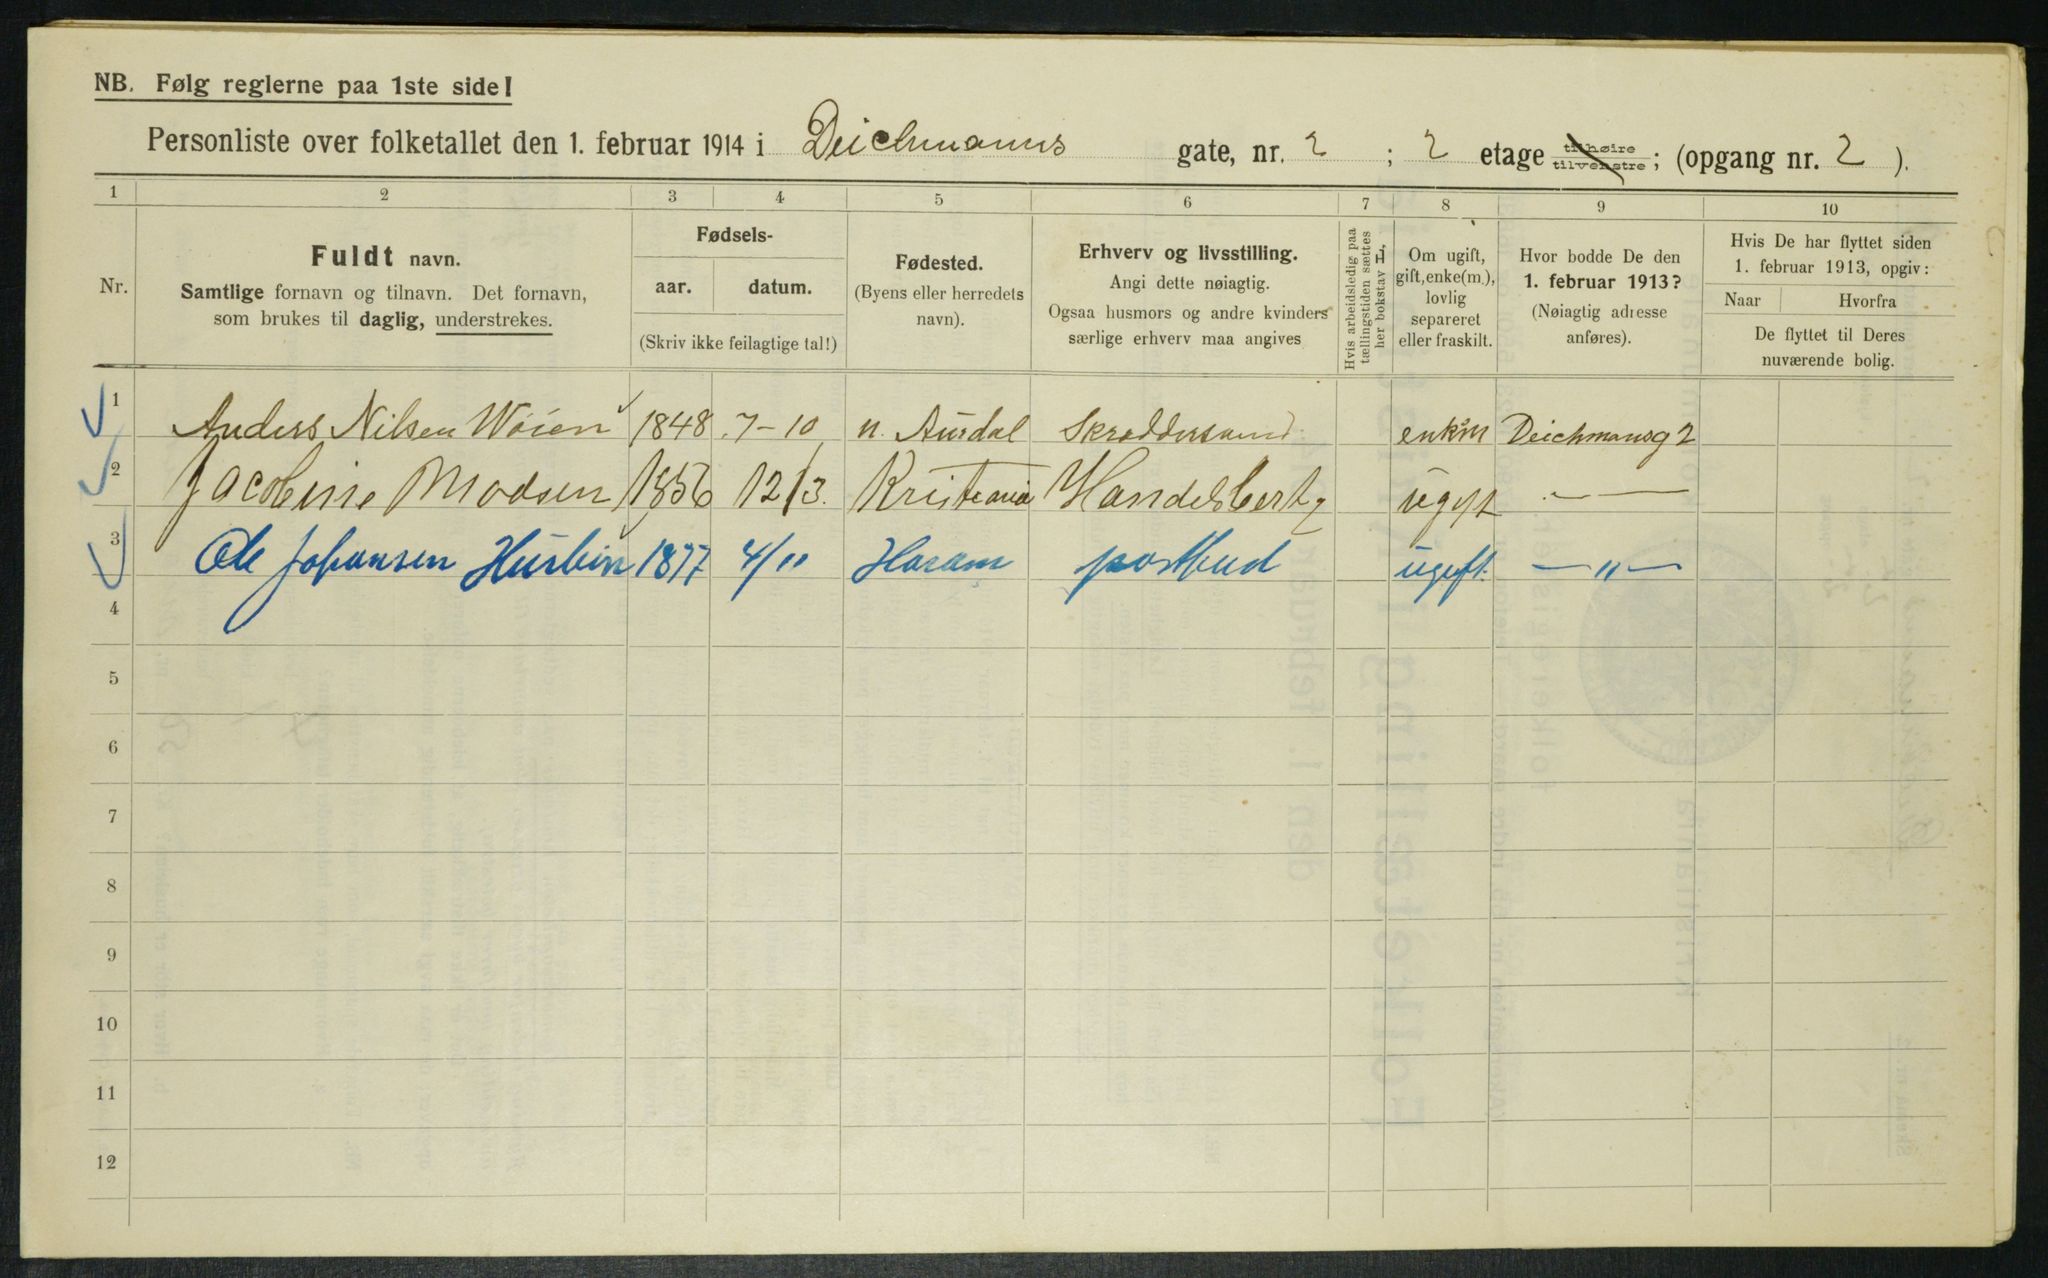 NB. Følg reglerne paa 1ste side!
Personliste over folketallet den 1. februar 1914 i Deichmanns gate, nr. 2 ; 2 etage tilhøire tilvenstre ; (opgang nr. 2 ).
1 2 3 4 5 6 7 8 9 10
Nr.
Fuldt navn.
Samtlige fornavn og tilnavn. Det fornavn,
som brukes til daglig, understrekes.
Fødsels-
aar. datum.
(Skriv ikke feilagtige tal!)
Fødested.
(Byens eller herredets
navn).
Erhverv og livsstilling.
Angi dette nøiagtig.
Ogsaa husmors og andre kvinders
særlige erhverv maa angives
Hvis arbeidsledig paa
tællingstiden sættes
her bokstav L,
Om ugift,
gift, enke(m.),
lovlig
separeret
eller fraskilt.
Hvor bodde De den
1. februar 1913?
(Nøiagtig adresse
anføres).
Hvis De har flyttet siden
1. februar 1913, opgiv:
Naar Hvorfra
De flyttet til Deres
nuværende bolig.
1 Anders Nilsen Wøien 1848 7-10 n. Aurdal Skræddersvend enkm Deichmansg 2
2 Jacobine Madsen 1856 12/3. Kristiania ugift — —
3 Ole Johansen 1877 4/11 Haram postbud ugift. — „ —
4
5
6
7
8
9
10
11
12